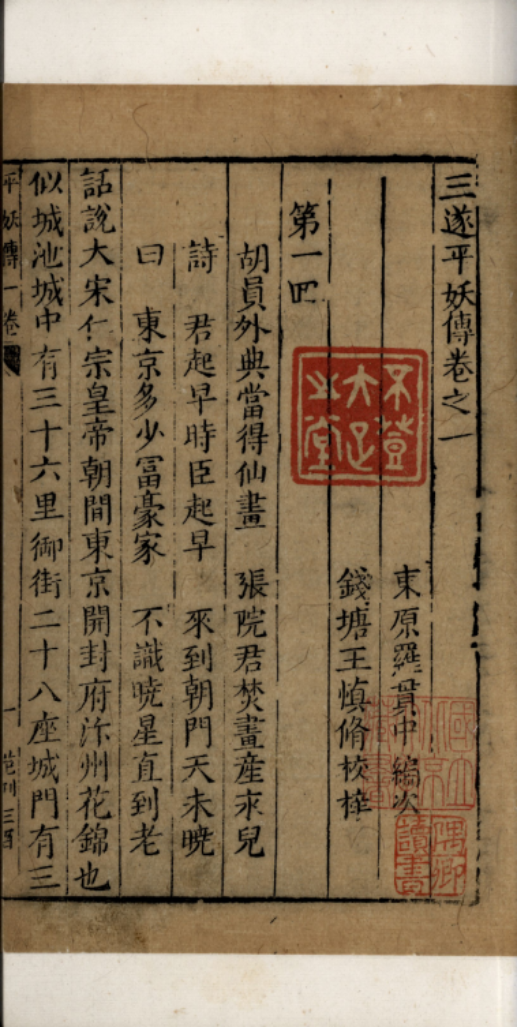 三遂平妖傳卷之一
東原羅貫中編次
錢塘王慎脩校梓
第一囬
胡員外典當得仙畫　張院君焚畫產永兒
詩　君起早時臣起早　來到朝門天未曉
曰　東京多少冨豪家　不識曉星直到老
話說大宋仁宗皇帝朝間東京開封府汴州花錦也
似城池城中有三十六里御街二十八座城門有三
平妖傳一卷　一
不登大疋之堂
隅卿讀書